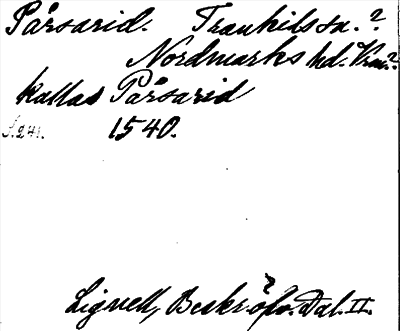 Påsarid. Trankils sn.?
Nordmarks hd. Vrm.?
kallas Påsarid
S. 241. 1540.
Lignell, Beskr. öfv. Dal. II.